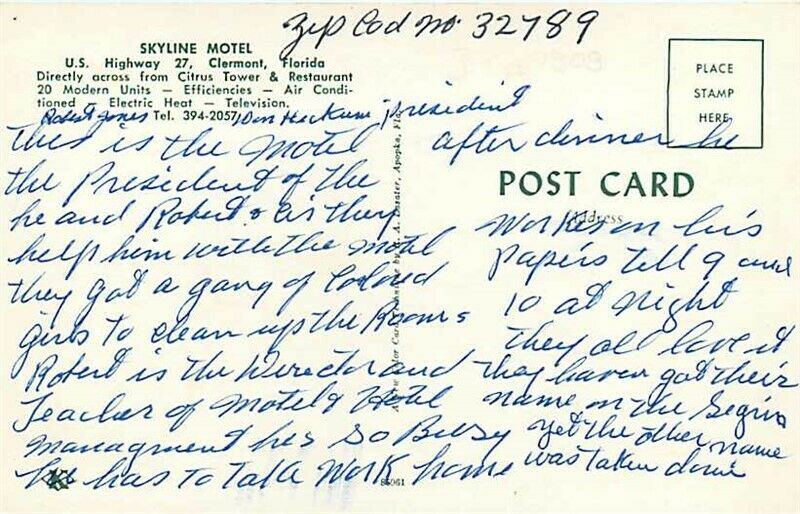 Zip Cod no. 32789
SKYLINE MOTEL
U.S. Highway 27, Clermont, Florida
Directly across from Citrus Tower & Restaurant
20 Modern Units — Efficiencies — Air Condi-
tioned — Electric Heat — Television.
Tel. 394-2057
Robert Jones Don President
This is the Motel
the President of the
he and Robert & as they
help him with the motel
they got a gang of Colored
girls to clean up the Rooms
Robert is the Director and
Teacher of Motel & Hotel
managment hes so Busy
he has to Talk Work home
PLACE
STAMP
HERE
after dinner he
POST CARD
Address
Works on his
Papers till 9 and
10 at night
they all love it
they haven got their
name on the
yet the other name
was taken down
Apopka, Fla.
86061